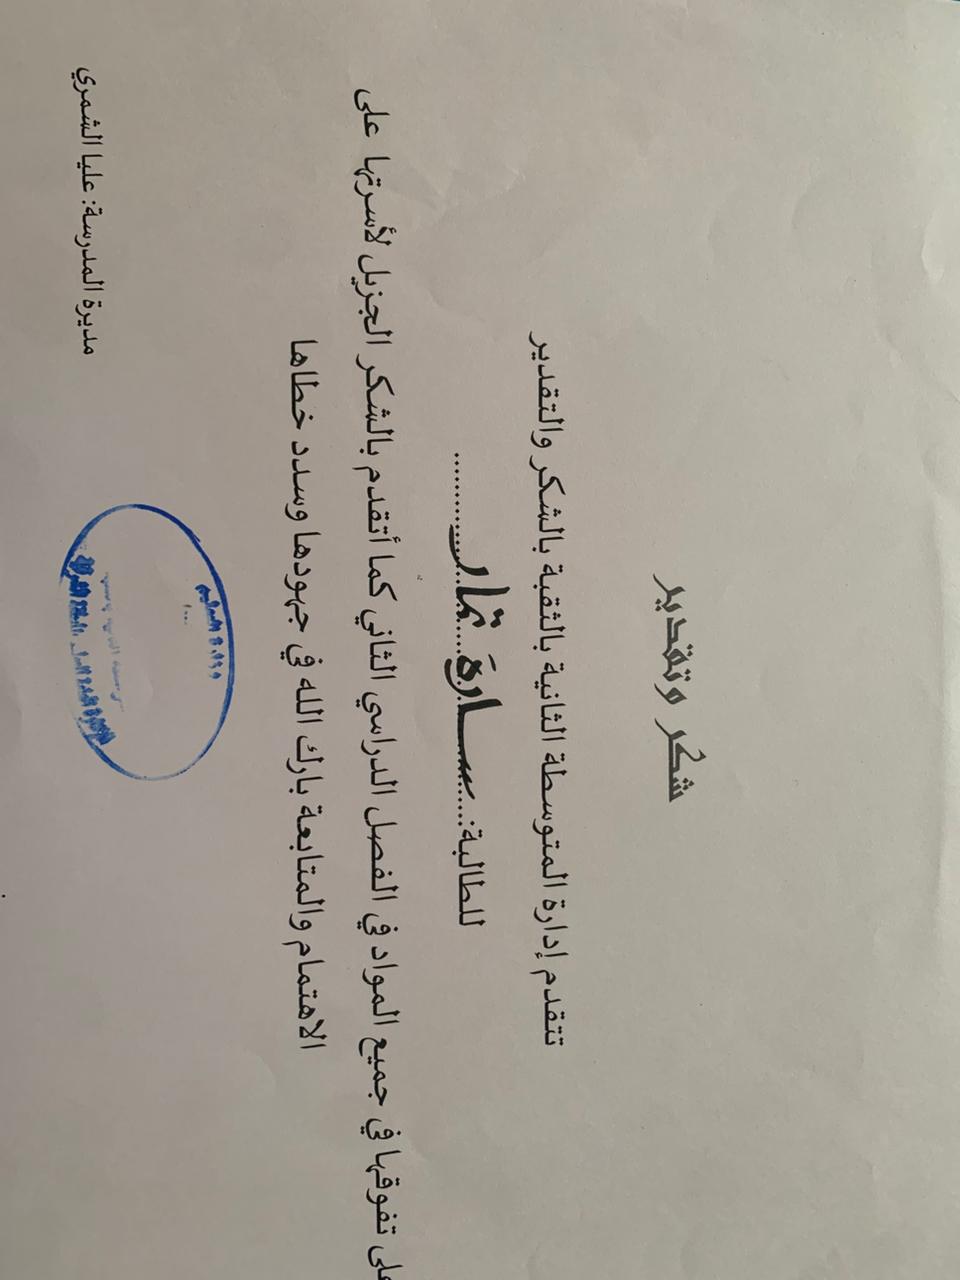 شكر وتقدير
تتقدم إدارة المتوسطة الثانية بالثقبة بالشكر والتقدير
للطالبة:.......سارة عمار..............
على تفوقها في جميع المواد في الفصل الدراسي الثاني كما أتقدم بالشكر الجزيل لأسرتها على
الاهتمام والمتابعة بارك الله في جهودها وسدد خطاها
مديرة المدرسة: عليا الشمري